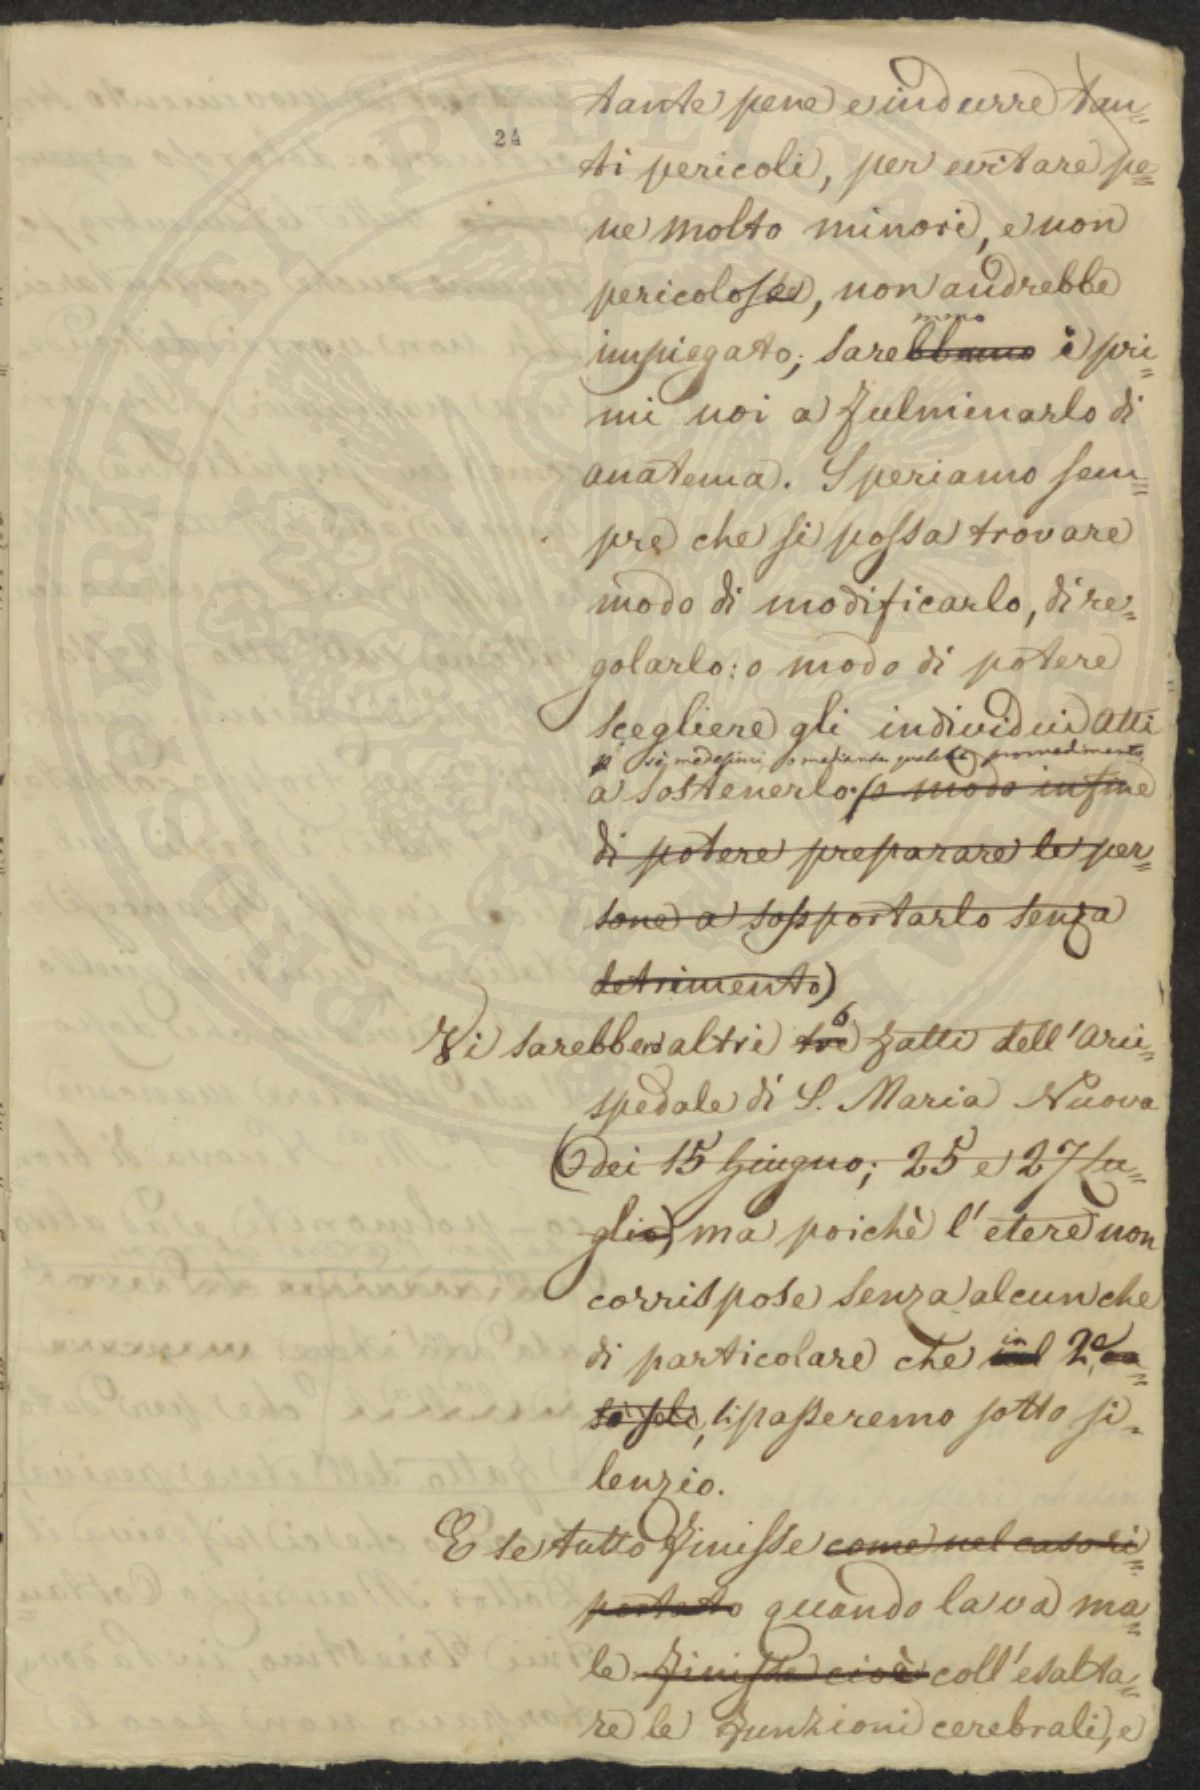 24
tante pene e indurre tan=
ti pericoli, per evitare pe=
ne molto minori, e non
pericolose, non andrebbe
mmo
impiegato; sarebbamo i pri=
mi noi a fulminarlo di
anatema. Speriamo sem=
pre che si possa trovare
modo di modificarlo, di re=
golarlo: o modo di potere
scegliere gli individui atti
sè medesimi, o mediante qualche provvedimento,
a sostenerlo. (o modo infine
di potere preparare le per=
sone a sopportarlo senza
detrimento)
6
Vi sarebbero altri tre fatti dell'Arci=
spedale di S. Maria Nuova
(dei 15 Giugno; 25 e 27 Lu=
glio) ma poichè l'etere non
corrispose senza alcunchè
in
di particolare che 2, ca=
si soli, li passeremo sotto si=
lenzio.
E se tutto finisse come nel caso ri=
portato quando la va ma=
le finisse cioè coll'esalta=
re le funzioni cerebrali, e
PROSPERITATI PUBLICAE